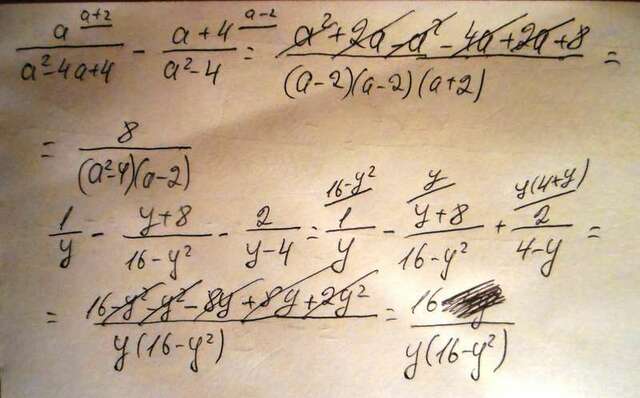 a^{a+2}/(a²-4a+4) - (a+4)^{a-2}/(a²-4) = (a²+2a-a²-4a+2a+8)/((a-2)(a-2)(a+2)) =
= 8/((a²-4)(a-2))
1/y - (y+8)/(16-y²) - 2/(y-4) = 1^{16-y²}/y - (y+8)^{y}/(16-y²) + 2^{y(4+y)}/(4-y) =
= (16-y²-y²-8y+8y+2y²)/(y(16-y²)) = 16/(y(16-y²))